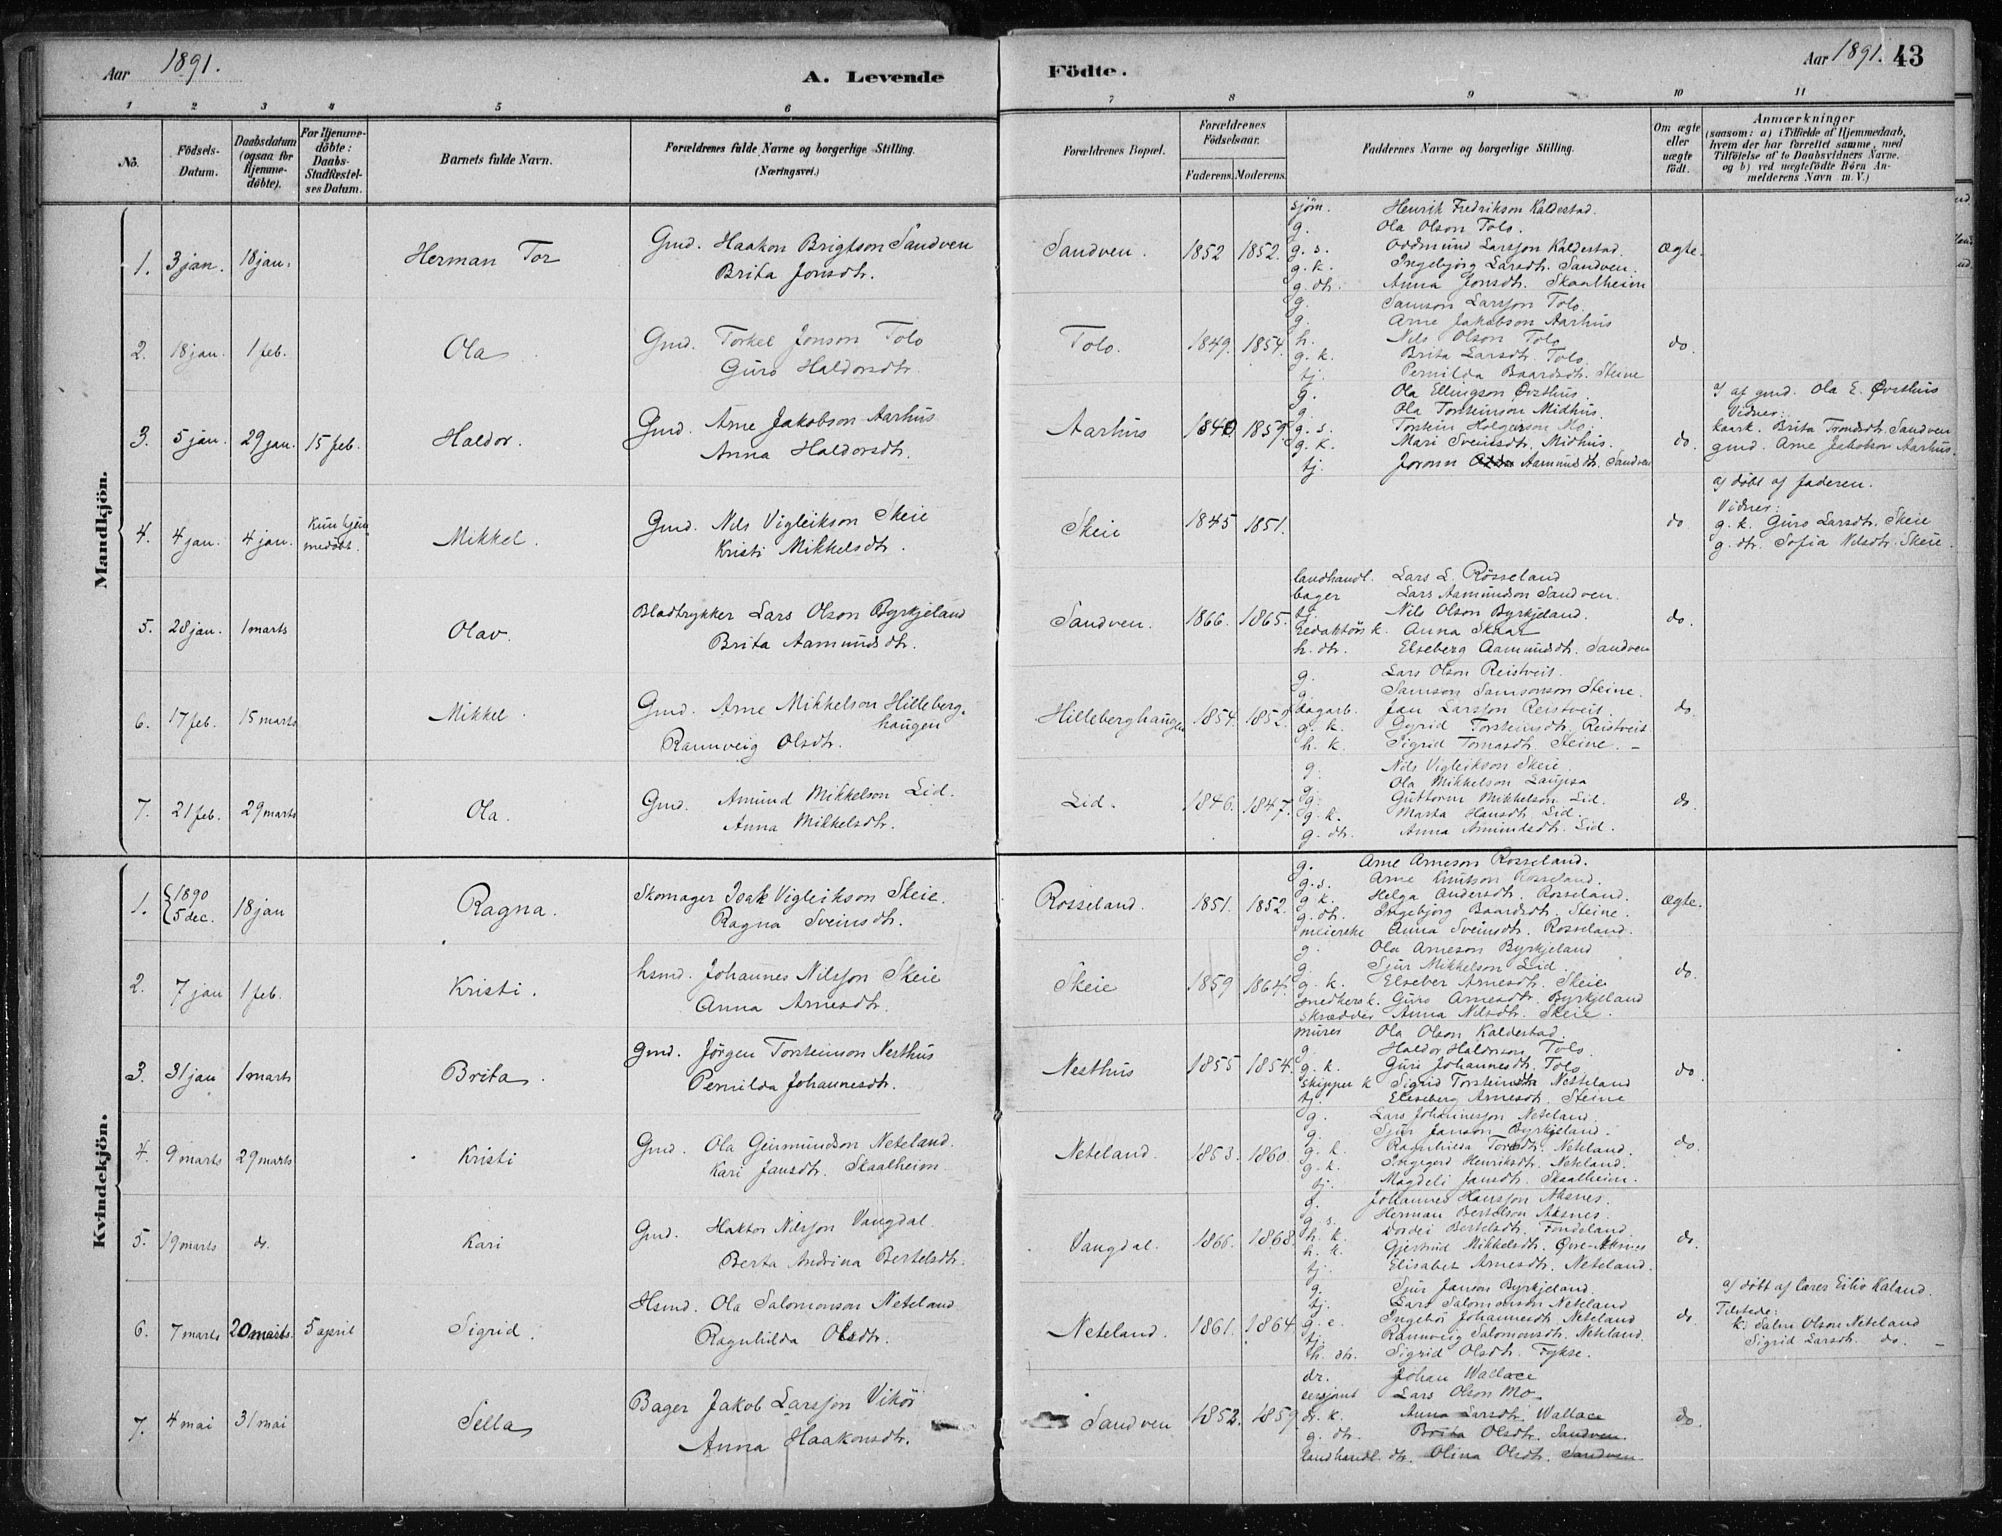 Aar 1891.
A. Levende Födte.
Aar 1891. 43
1 2 3 4 5 6 7 8 9 10 11
No.
Födsels-Datum.
Daabsdatum (ogsaa for Hjemmedöbte).
For Hjemmedöbte: Daabs-Stadfæstelses Datum.
Barnets fulde Navn.
Forældrenes fulde Navne og borgerlige Stilling. (Næringsvei.)
Forældrenes Bopæl.
Forældrenes Födselsaar.
Faderens. Moderens.
Faddernes Navne og borgerlige Stilling.
Om ægte eller uægte födt.
Anmærkninger
(saasom: a) i Tilfælde af Hjemmedaab, hvem der har forrettet samme, med Tilföielse af to Daabsvidners Navne, og b) ved uægtefödte Börn Anmelderens Navn m. V.)
Mandkjön.
1. 3 jan. 18 jan. Herman Tor
Gmd. Haakon Brigtson Sandven
Brita Jonsdtr.
Sandven. 1852 1852.
sjöm. Henrik Fredrikson Kaldestad.
g. Ola Olson Tolo.
g. s. Oddmund Larsson Kaldestad.
g. k. Ingebjörg Larsdtr. Sandven.
g. dtr. Anna Jonsdtr. Skaalheim
Ægte.
2. 18 jan. 1 feb. Ola
Gmd. Torkel Jonson Tolo
Guro Haldorsdtr.
Tolo. 1849. 1854.
g. Samson Larsson Tolo.
g. Arne Jakobson Aarhus
h. Nils Olson Tolo
g. k. Brita Larsdtr. Tolo.
tj. Pernilda Baardsdtr. Steine
do.
3. 5 jan. 29 jan. 15 feb. Haldor.
Gmd. Arne Jakobson Aarhus
Anna Haldorsdtr.
Aarhus 1840 1859
g. Ola Ellingson Øvsthus
g. Ola Torsteinson Midhus.
g. s. Torstein Holgerson Mo.
g. k. Mari Sveinsdtr. Midhus.
tj. Joronn Aamundsdtr. Sandven
do.
a) af gmd. Ola E. Øvsthus
Vidner:
kaark. Brita Trondsdtr. Sandven
gmd. Arne Jakobson Aarhus.
4. 4 jan. 4 jan. Kun hjemmedöbt. Mikkel.
Gmd. Nils Vigleikson Skeie
Kristi Mikkelsdtr.
Skeie 1845 1851.
do
a) döbt af faderen.
Vidner:
g. k. Guro Larsdtr. Skeie
g. dtr. Sofia Nilsdtr. Skeie.
5. 28 jan. 1 marts Olav.
Bladtrykker Lars Olson Byrkjeland
Brita Aamundsdtr.
Sandven. 1866. 1865.
landhandl. Lars L. Rösseland
bager Lars Aamundson Sandven.
tj. Nils Olson Byrkjeland.
redaktörs k. Anna Skaar
h. dtr. Elseberg Aamundsdtr. Sandven
do.
6. 17 feb. 15 marts Mikkel.
Gmd. Arne Mikkelson Hilleberg-
haugen
Rannveig Olsdtr.
Hilleberghaugen 1854. 1852.
g. Lars Olson Reistveit.
g. Samson Samsonson Steine.
dagarb. Jan Larsson Reistveit.
g. k. Gyrid Torsteinsdtr. Reistveit.
h. k. Sigrid Tomasdtr. Steine.
do.
7. 21 feb. 29 marts Ola.
Gmd. Amund Mikkelson Lid.
Anna Mikkelsdtr.
Lid. 1846. 1847.
g. Nils Vigleikson Skeie.
g. Ola Mikkelson Laupsa
g. Guttorm Mikkelson Lid.
g. k. Marta Hansdtr. Lid.
g. dtr. Anna Amundsdtr. Lid.
do.
Kvindekjön.
1. 1890 5 dec. 18 jan Ragna.
Skomager Isak Vigleikson Skeie.
Ragna Sveinsdtr.
Rosseland. 1851. 1852.
g. Arne Arneson Rosseland.
g. s. Arne Knutson Rosseland.
g. k. Helga Andersdtr. Rosseland.
g. dtr. Ingebjörg Baardsdtr. Steine.
meierske Anna Sveinsdtr. Rosseland.
Ægte.
2. 7 jan 1 feb. Kristi.
hsmd. Johannes Nilsson Skeie
Anna Arnesdtr.
Skeie 1859 1864.
g. Ola Arneson Byrkjeland
g. Sjur Mikkelson Lid.
g. k. Elseber Arnesdtr. Skeie
snedkers k. Guro Arnesdtr. Byrkjeland
skrædder Anna Nilsdtr. Skeie.
do.
3. 31 jan 1 marts Brita.
Gmd. Jörgen Torsteinson Nesthus
Pernilda Johannesdtr.
Nesthus 1855 1854.
murer Ola Olson Kaldestad.
g. Haldor Haldorson Tolo.
g. k. Guri Johannesdtr. Tolo
skipper k Sigrid Torsteinsdtr Nesteland
tj. Elseberg Arnesdtr. Steine
do.
4. 9 marts 29 marts Kristi
Gmd. Ola Geirmundson Neteland.
Kari Jansdtr. Skaalheim.
Neteland. 1853. 1860.
g. Lars Johannesson Neteland.
g. Sjur Janson Byrkjeland.
g. k. Ragnhilda Torsdtr. Neteland.
g. k. Ingegerd Henriksdtr. Neteland.
tj. Magdeli Jansdtr. Skaalheim.
do.
5. 19 marts do. Kari
Gmd. Haktor Nilsson Vangdal.
Berta Andrina Bertelsdtr.
Vangdal. 1866. 1868.
g. Johannes Hansson Aksnes.
g. s. Herman Bertelson Aksnes.
h. k. Dordei Bertelsdtr. Fondeland
h. k. Gjertrud Mikkelsdtr. Øvre-Aksnes
tj. Elisabet Arnesdtr. Neteland.
do.
6. 7 marts 20 marts. 5 april Sigrid.
Hsmd. Ola Salomonson Neteland
Ragnhilda Olsdtr.
Neteland. 1861. 1864
g. Sjur Janson Byrkjeland.
tj. Lars Salomonson Neteland
g. e. Ingebör Johannesdtr. Neteland
tj. Rannveig Salomonsdtr. Neteland.
h. dtr. Sigrid Olsdtr. Fykse.
do.
a) döbt af Kaland.
Tilstede:
k. Salm Olson Neteland
Sigrid Larsdtr. do.
7. 4 mai 31 mai Sella
Bager Jakob Larsson Vikör
Anna Haakonsdtr.
Sandven 1852. 1859.
dr. Johan Wallace
sersjant Lars Olson Mo.
dr. k. Anna Larsdtr. Wallace
g. dtr. Brita Olsdtr. Sandven.
landhandl. dtr. Olina Olsdtr. Sandven.
do.